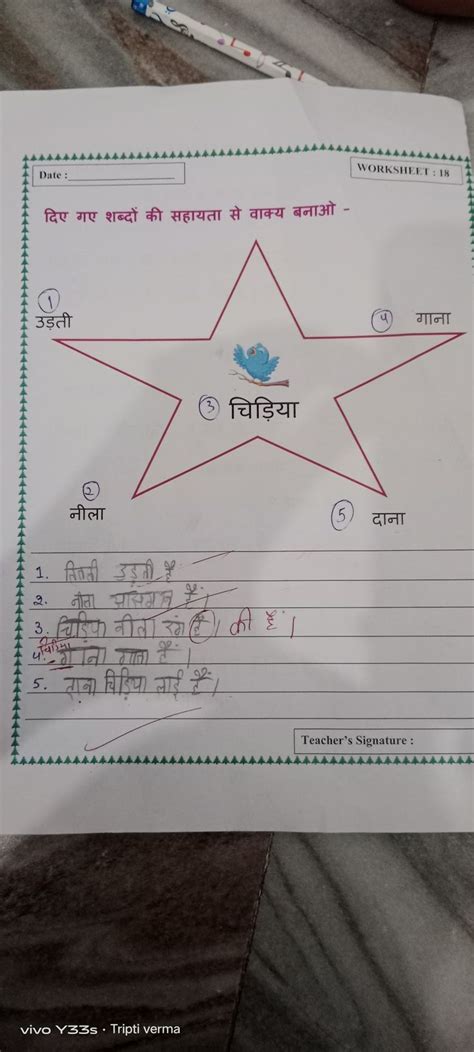 Date :
WORKSHEET : 18
दिए गए शब्दों की सहायता से वाक्य बनाओ -
① उड़ती
④ गाना
③ चिड़िया
② नीला
⑤ दाना
1. तितली उड़ती है
2. नीला आसमान हैं।
3. चिड़िया नीला रंग हैं। की हैं।
चिड़िया
4. गाना गाता हैं।
5. दाना चिड़िया लाई हैं।
Teacher's Signature :
vivo Y33s · Tripti verma